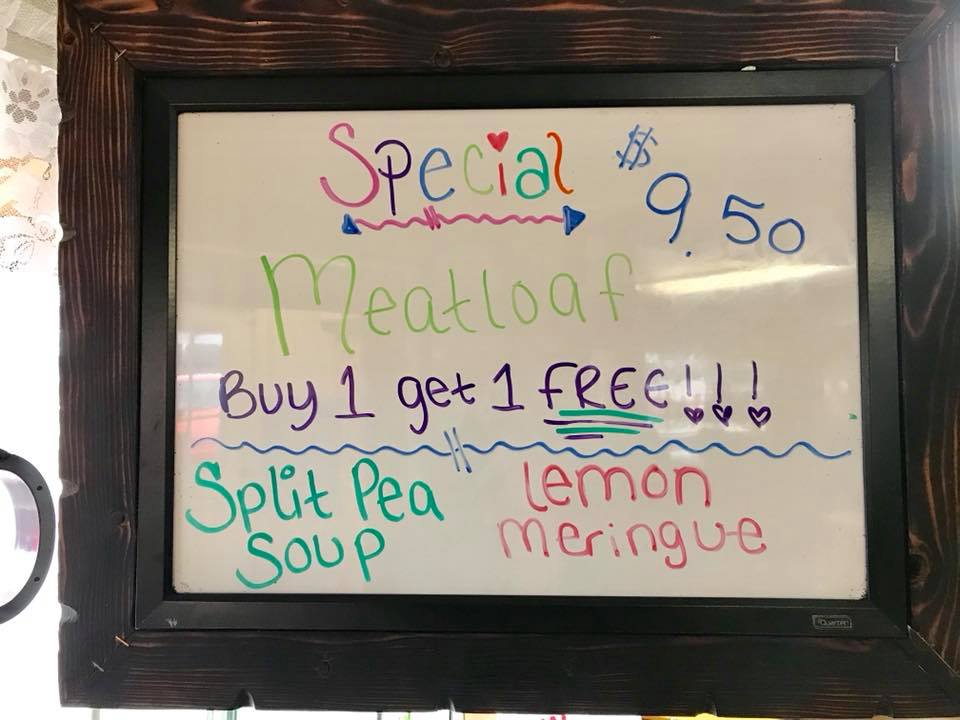 Special $9.50
Meatloaf
Buy 1 get 1 FREE!!!
Split Pea Soup
Lemon Meringue
Quartet